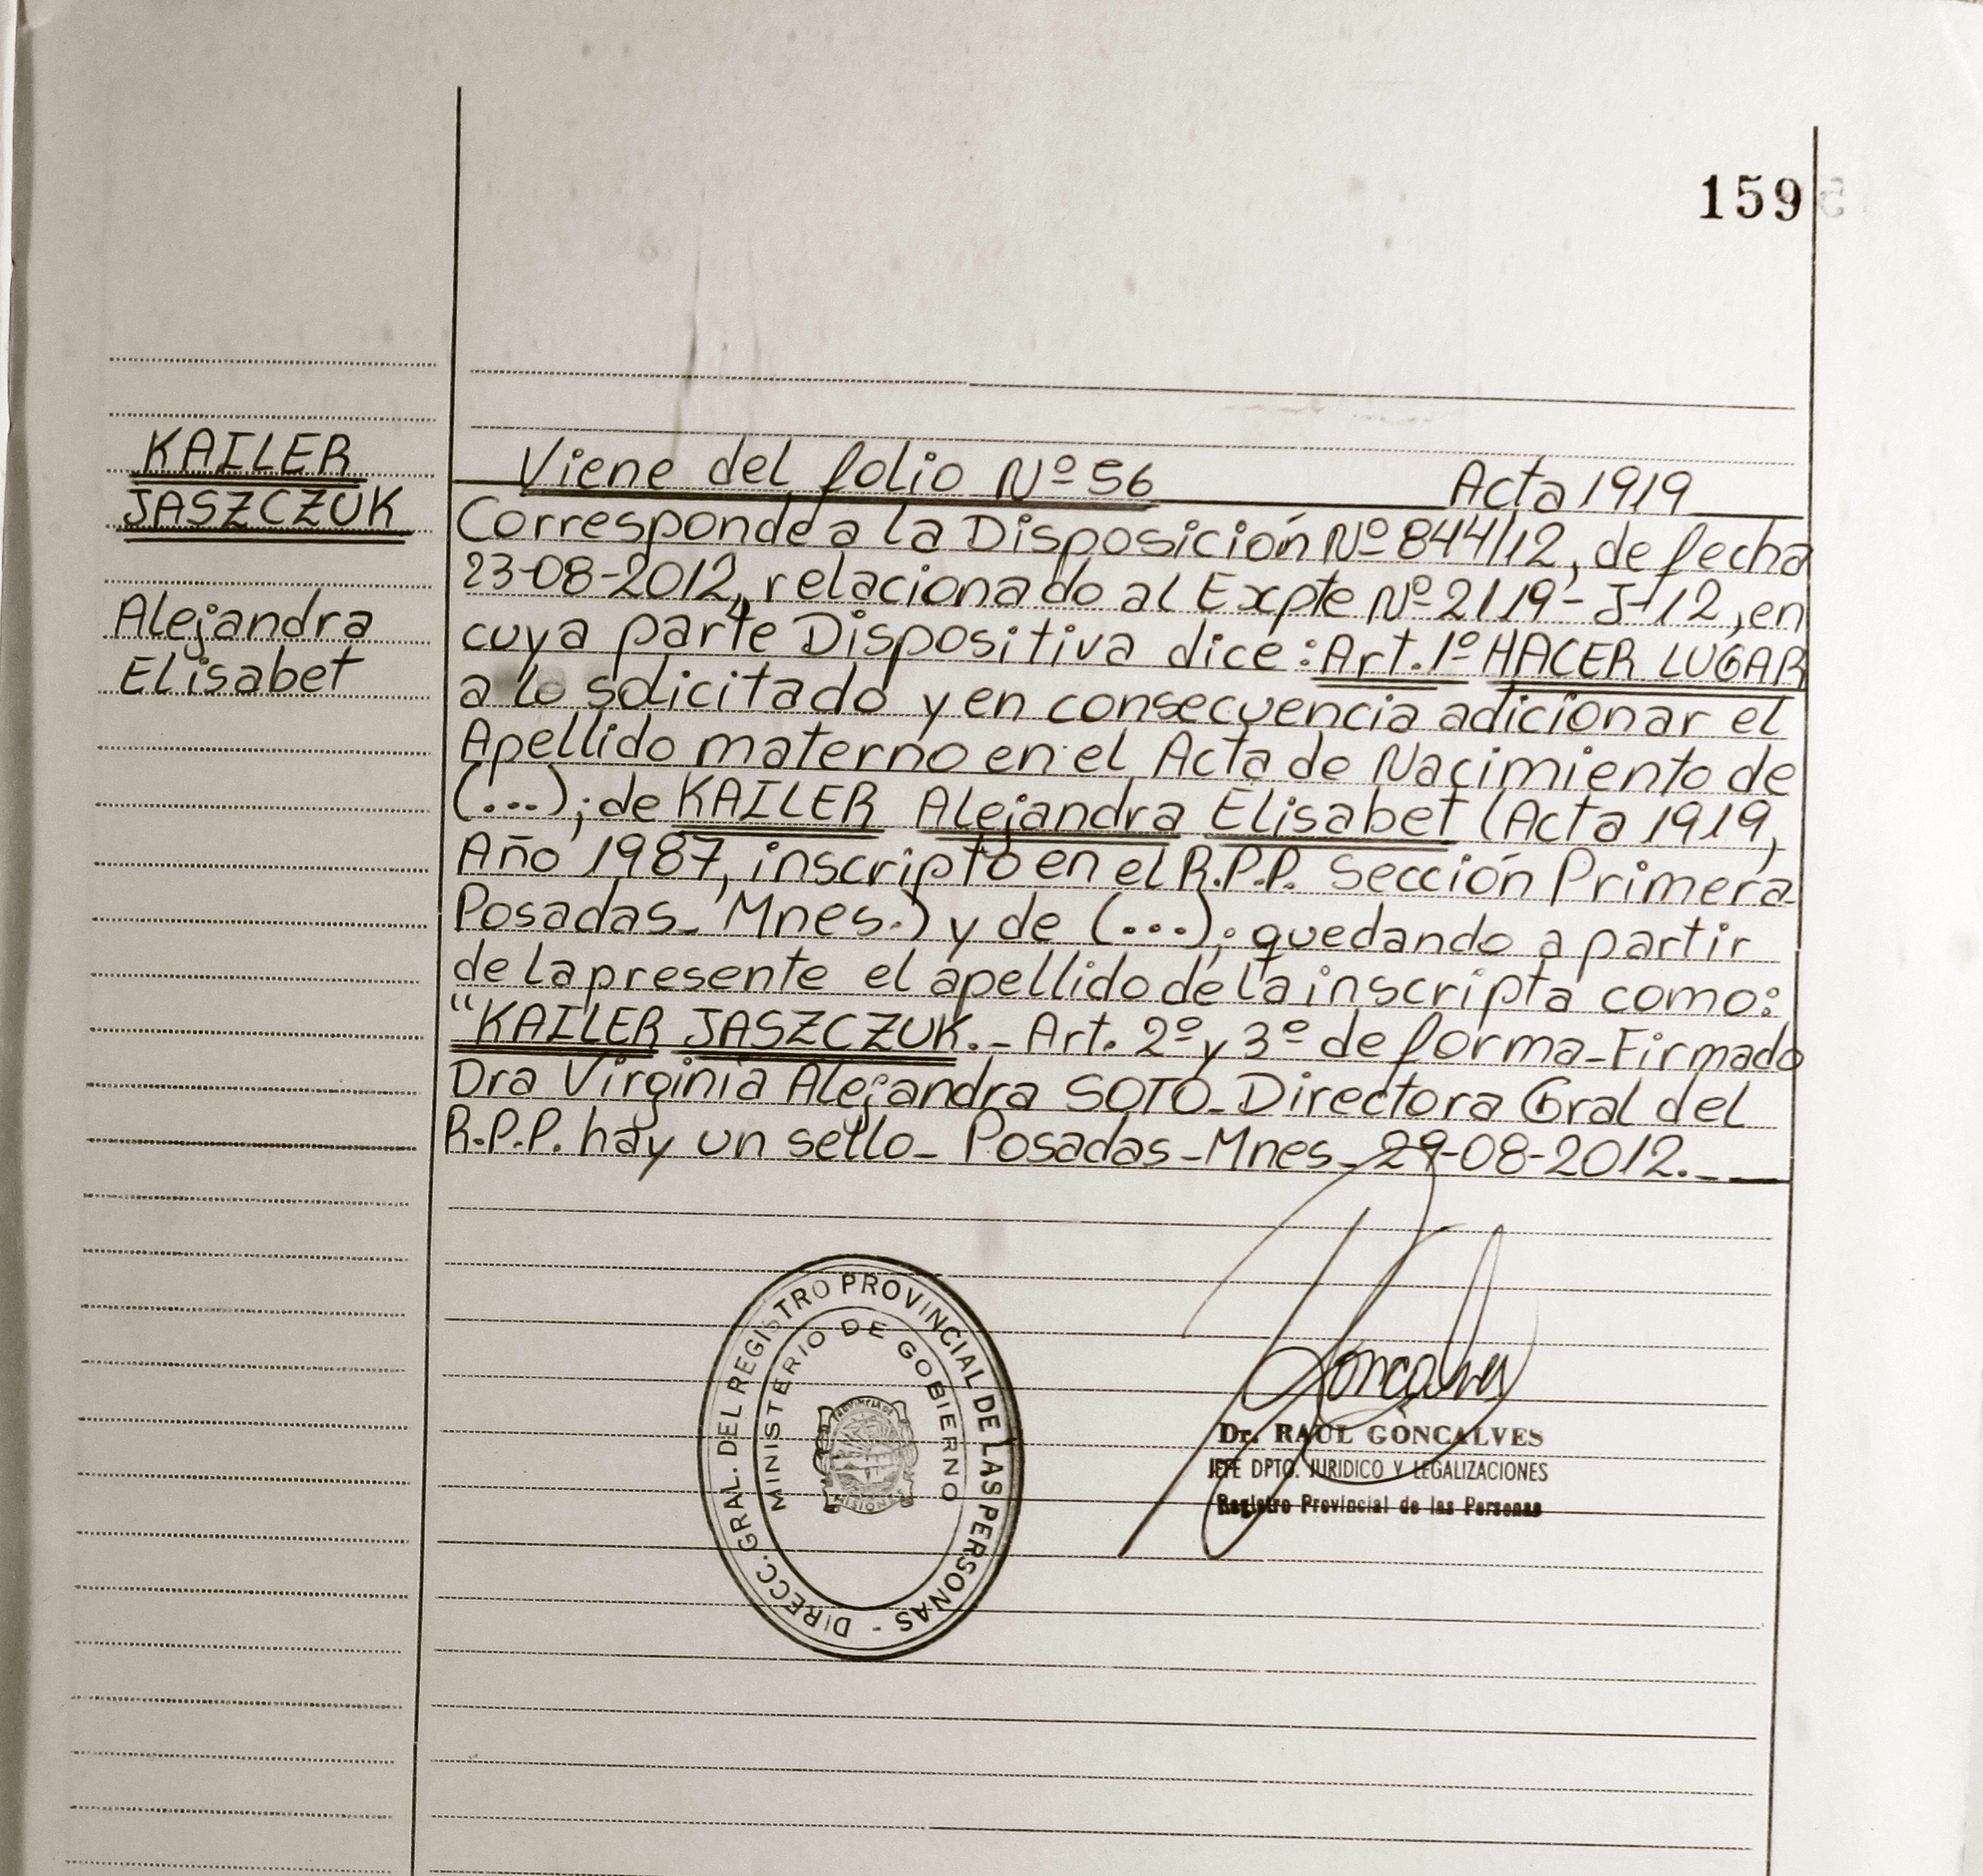 159
KAILER
JASZCZUK
Alejandra
Elisabet
Viene del folio Nº 56 Acta 1919
Corresponde a la Disposición Nº 844/12, de fecha
23-08-2012, relacionado al Expte Nº 2119-J-12, en
cuya parte Dispositiva dice: Art. 1º HACER LUGAR
a lo solicitado y en consecuencia adicionar el
Apellido materno en el Acta de Nacimiento de
(...); de KAILER Alejandra Elisabet (Acta 1919,
Año 1987, inscripto en el R.P.P. Sección Primera
Posadas- Mnes.) y de (...); quedando a partir
de la presente el apellido de la inscripta como:
"KAILER JASZCZUK.- Art. 2º y 3º de forma-Firmado
Dra Virginia Alejandra SOTO-Directora Gral del
R.P.P. hay un sello- Posadas-Mnes- 29-08-2012.-
DIRECC. GRAL. DEL REGISTRO PROVINCIAL DE LAS PERSONAS -
MINISTERIO DE GOBIERNO
PROVINCIA DE
MISIONES
Goncalves
Dr. RAUL GONCALVES
JEFE DPTO. JURIDICO Y LEGALIZACIONES
Registro Provincial de las Personas